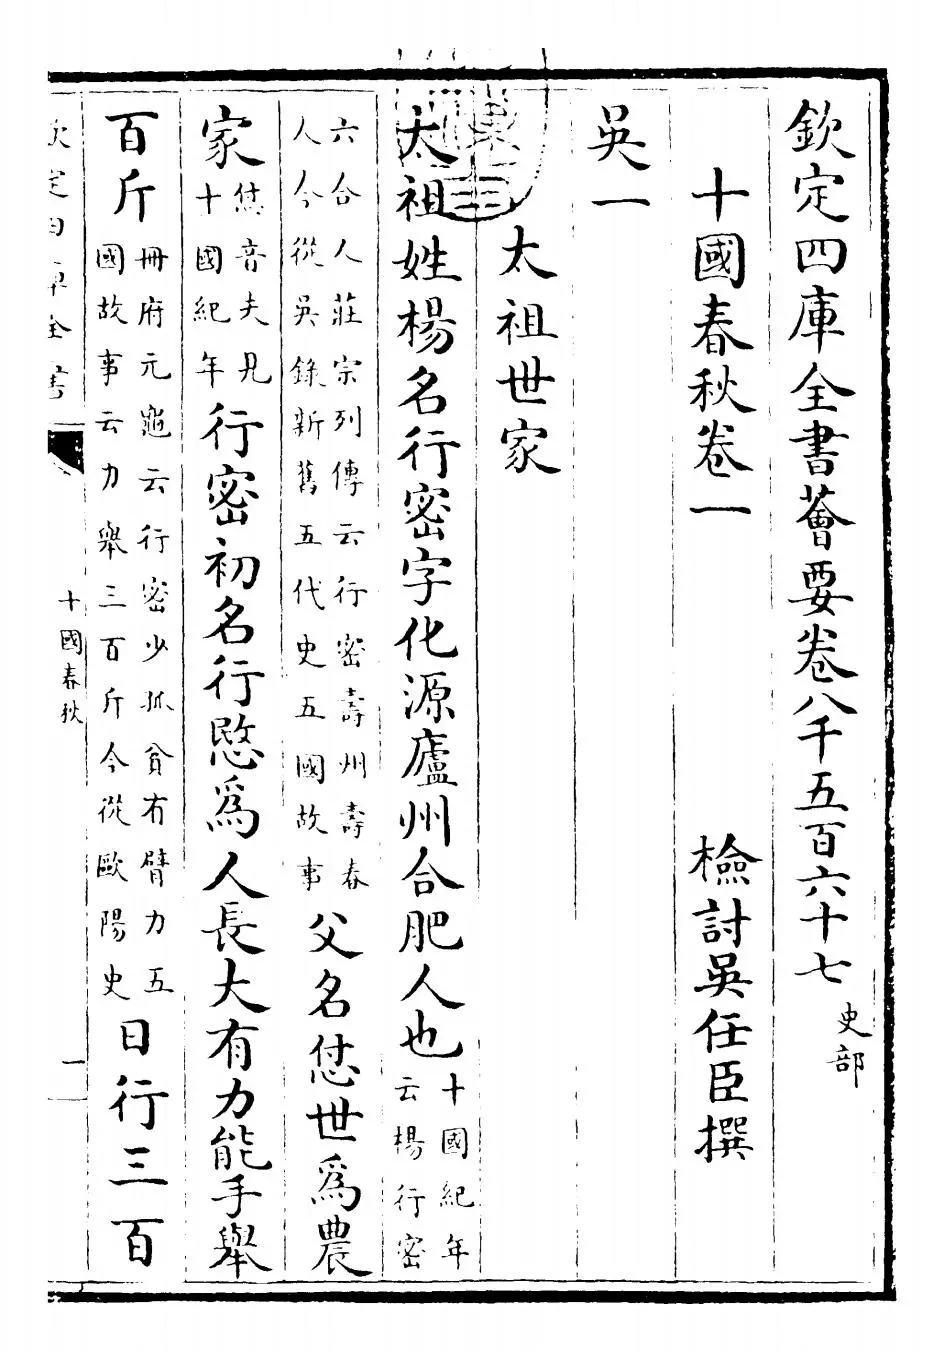 欽定四庫全書薈要卷八千五百六十七 史部
十國春秋卷一 檢討吳任臣撰
吳一
太祖世家
太祖姓楊名行密字化源廬州合肥人也十國紀年云楊行密
六合人莊宗列傳云行密壽州壽春人今從吳錄新舊五代史五國故事父名怤世為農
家怤音夫見十國紀年行密初名行愍為人長大有力能手舉
百斤冊府元龜云行密少孤貧有臂力五國故事云力舉三百斤今從歐陽史日行三百
欽定四庫全書
十國春秋
一